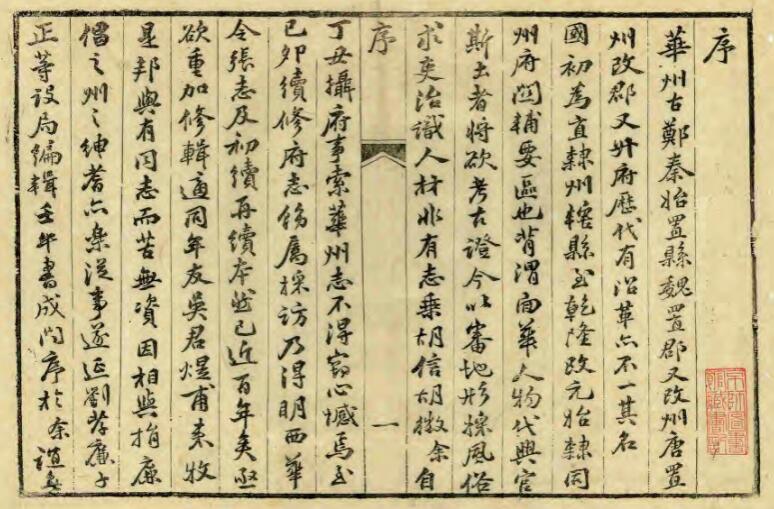 序
華州古鄭秦始置縣魏置郡又改州唐置
州改郡又升府歷代有沿革亦不一其名
國初為直隸州轄縣至乾隆改元始隸同
州府關輔要區也背渭面華人物代興官
斯土者將欲考古證今以審地形採風俗
求吏治識人材非有志乘胡信胡徵余自
序
一
丁丑攝府事索華州志不得竊心憾焉至
己卯續修府志飭屬採訪乃得明西華
令張志及初續再續本然已近百年矣亟
欲重加修輯適同年友吳君煜甫来牧
是邦與有同志而苦無資因相與捐廉
倡之州之紳耆亦樂從事遂延劉孝廉子
正等設局編輯壬午書成問序於余誼